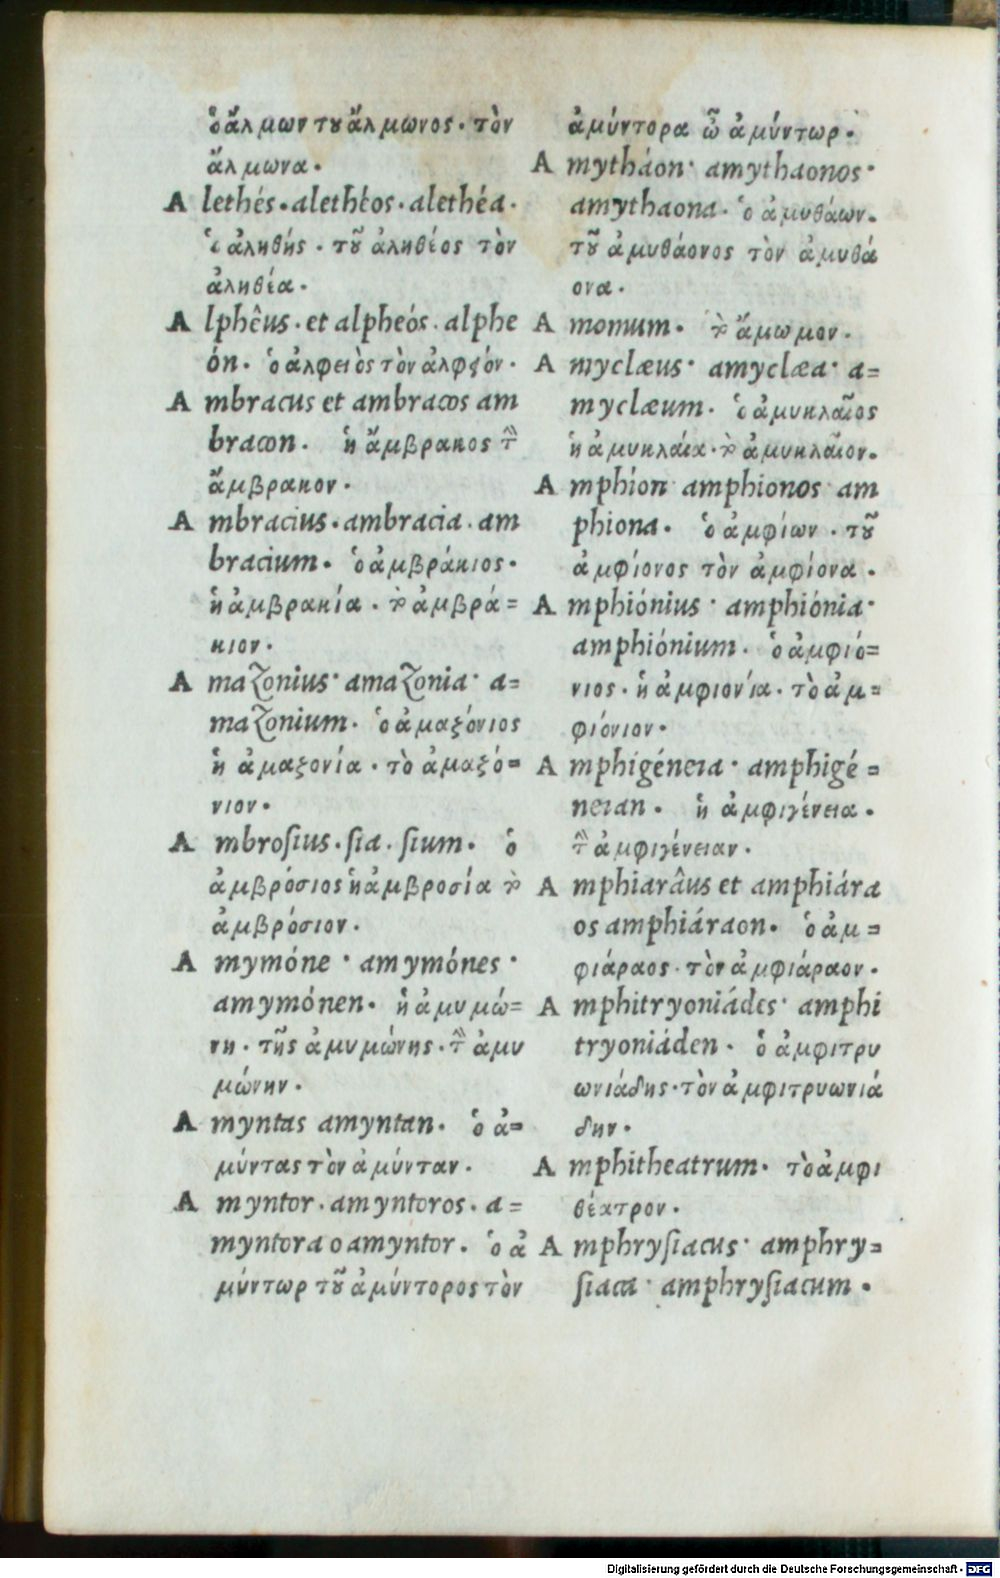 ὁ ἄλμων τȣ ἄλμωνος · τὸν
ἄλμωνα ·
A lethés · alethéos · alethéa ·
ὁ ἀληθής · τȣ͂ ἀληθέος τὸν
ἀληθέα ·
A lphêus · et alpheós · alphe
ón · ὁ ἀλφειὸς τὸν ἀλφειόν ·
A mbracus et ambracos am
bracon · ἡ ἄμβρακος τὴν
ἄμβρακον ·
A mbracius · ambracia · am
bracium · ὁ ἀμβράκιος ·
ἡ ἀμβρακία · τὸ ἀμβρά=
κιον ·
A maZonius · amaZonia · a=
maZonium · ὁ ἀμαξόνιος
ἡ ἀμαξονία · τὸ ἀμαξό=
νιον ·
A mbroſius · ſia · ſium · ὁ
ἀμβρόσιος ἡ ἀμβροσία τὸ
ἀμβρόσιον ·
A mymóne · amymónes ·
amymónen · ἡ ἀμυμώ=
νη · τῆς ἀμυμώνης · τὴν ἀμυ
μώνην ·
A myntas amyntan · ὁ ἀ=
μύντας τὸν ἀμύνταν ·
A myntor · amyntoros · a=
myntora o amyntor · ὁ ἀ
μύντωρ τȣ͂ ἀμύντορος τὸν
ἀμύντορα ὦ ἀμύντωρ ·
A mytháon · amythaonos ·
amythaona · ὁ ἀμυθάων ·
τȣ͂ ἀμυθάονος τὸν ἀμυθά
ονα ·
A momum · τὸ ἄμωμον ·
A myclæus · amyclæa · a=
myclæum · ὁ ἀμυκλαῖος
ἡ ἀμυκλαία · τὸ ἀμυκλαῖον ·
A mphíon · amphionos · am
phiona · ὁ ἀμφίων · τȣ͂
ἀμφίονος τὸν ἀμφίονα ·
A mphiónius · amphiónia ·
amphiónium · ὁ ἀμφιό=
νιος · ἡ ἀμφιονία · τὸ ἀμ=
φιόνιον ·
A mphigéneia · amphigé=
neian · ἡ ἀμφιγένεια ·
τὴν ἀμφιγένειαν ·
A mphiarâus et amphiára
os amphiáraon · ὁ ἀμ=
φιάραος · τὸν ἀμφιάραον ·
A mphitryoniádes · amphi
tryoniáden · ὁ ἀμφιτρυ
ωνιάδης · τὸν ἀμφιτρυωνιά
δην ·
A mphitheatrum · τὸ ἀμφι
θέατρον ·
A mphryſiacus · amphry=
ſiaca · amphryſiacum ·
Digitalisierung gefördert durch die Deutsche Forschungsgemeinschaft · DFG